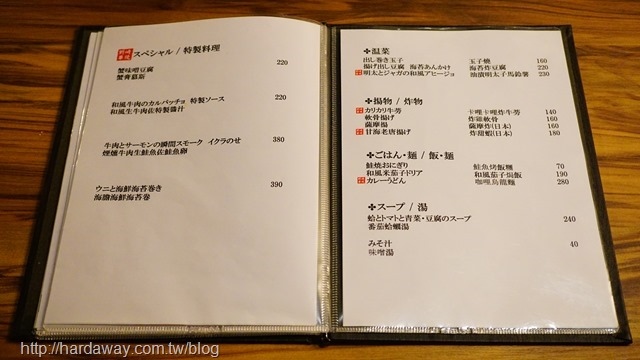 スペシャル / 特製料理
蟹味噌豆腐 220
蟹膏慕斯
和風牛肉のカルパッチョ 特製ソース 220
和風生牛肉佐特製醬汁
牛肉とサーモンの瞬間スモーク イクラのせ 380
煙燻牛肉生鮭魚佐鮭魚卵
ウニと海鮮海苔巻き 390
海膽海鮮海苔卷
✤温菜
出し巻き玉子 玉子燒 160
揚げ出し豆腐 海苔あんかけ 海苔炸豆腐 220
明太とジャガの和風アヒージョ 油漬明太子馬鈴薯 230
✤揚物 / 炸物
カリカリ牛蒡 卡哩卡哩炸牛蒡 140
軟骨揚げ 炸雞軟骨 160
薩摩揚 薩摩炸(日本) 160
甘海老唐揚げ 炸甜蝦(日本) 180
✤ごはん・麺 / 飯・麵
鮭焼おにぎり 鮭魚烤飯糰 70
和風茄子ドリア 和風茄子焗飯 190
カレーうどん 咖哩烏龍麵 280
✤スープ / 湯
蛤とトマトと青菜・豆腐のスープ 240
番茄蛤蠣湯
みそ汁 40
味噌湯
http://hardaway.com.tw/blog